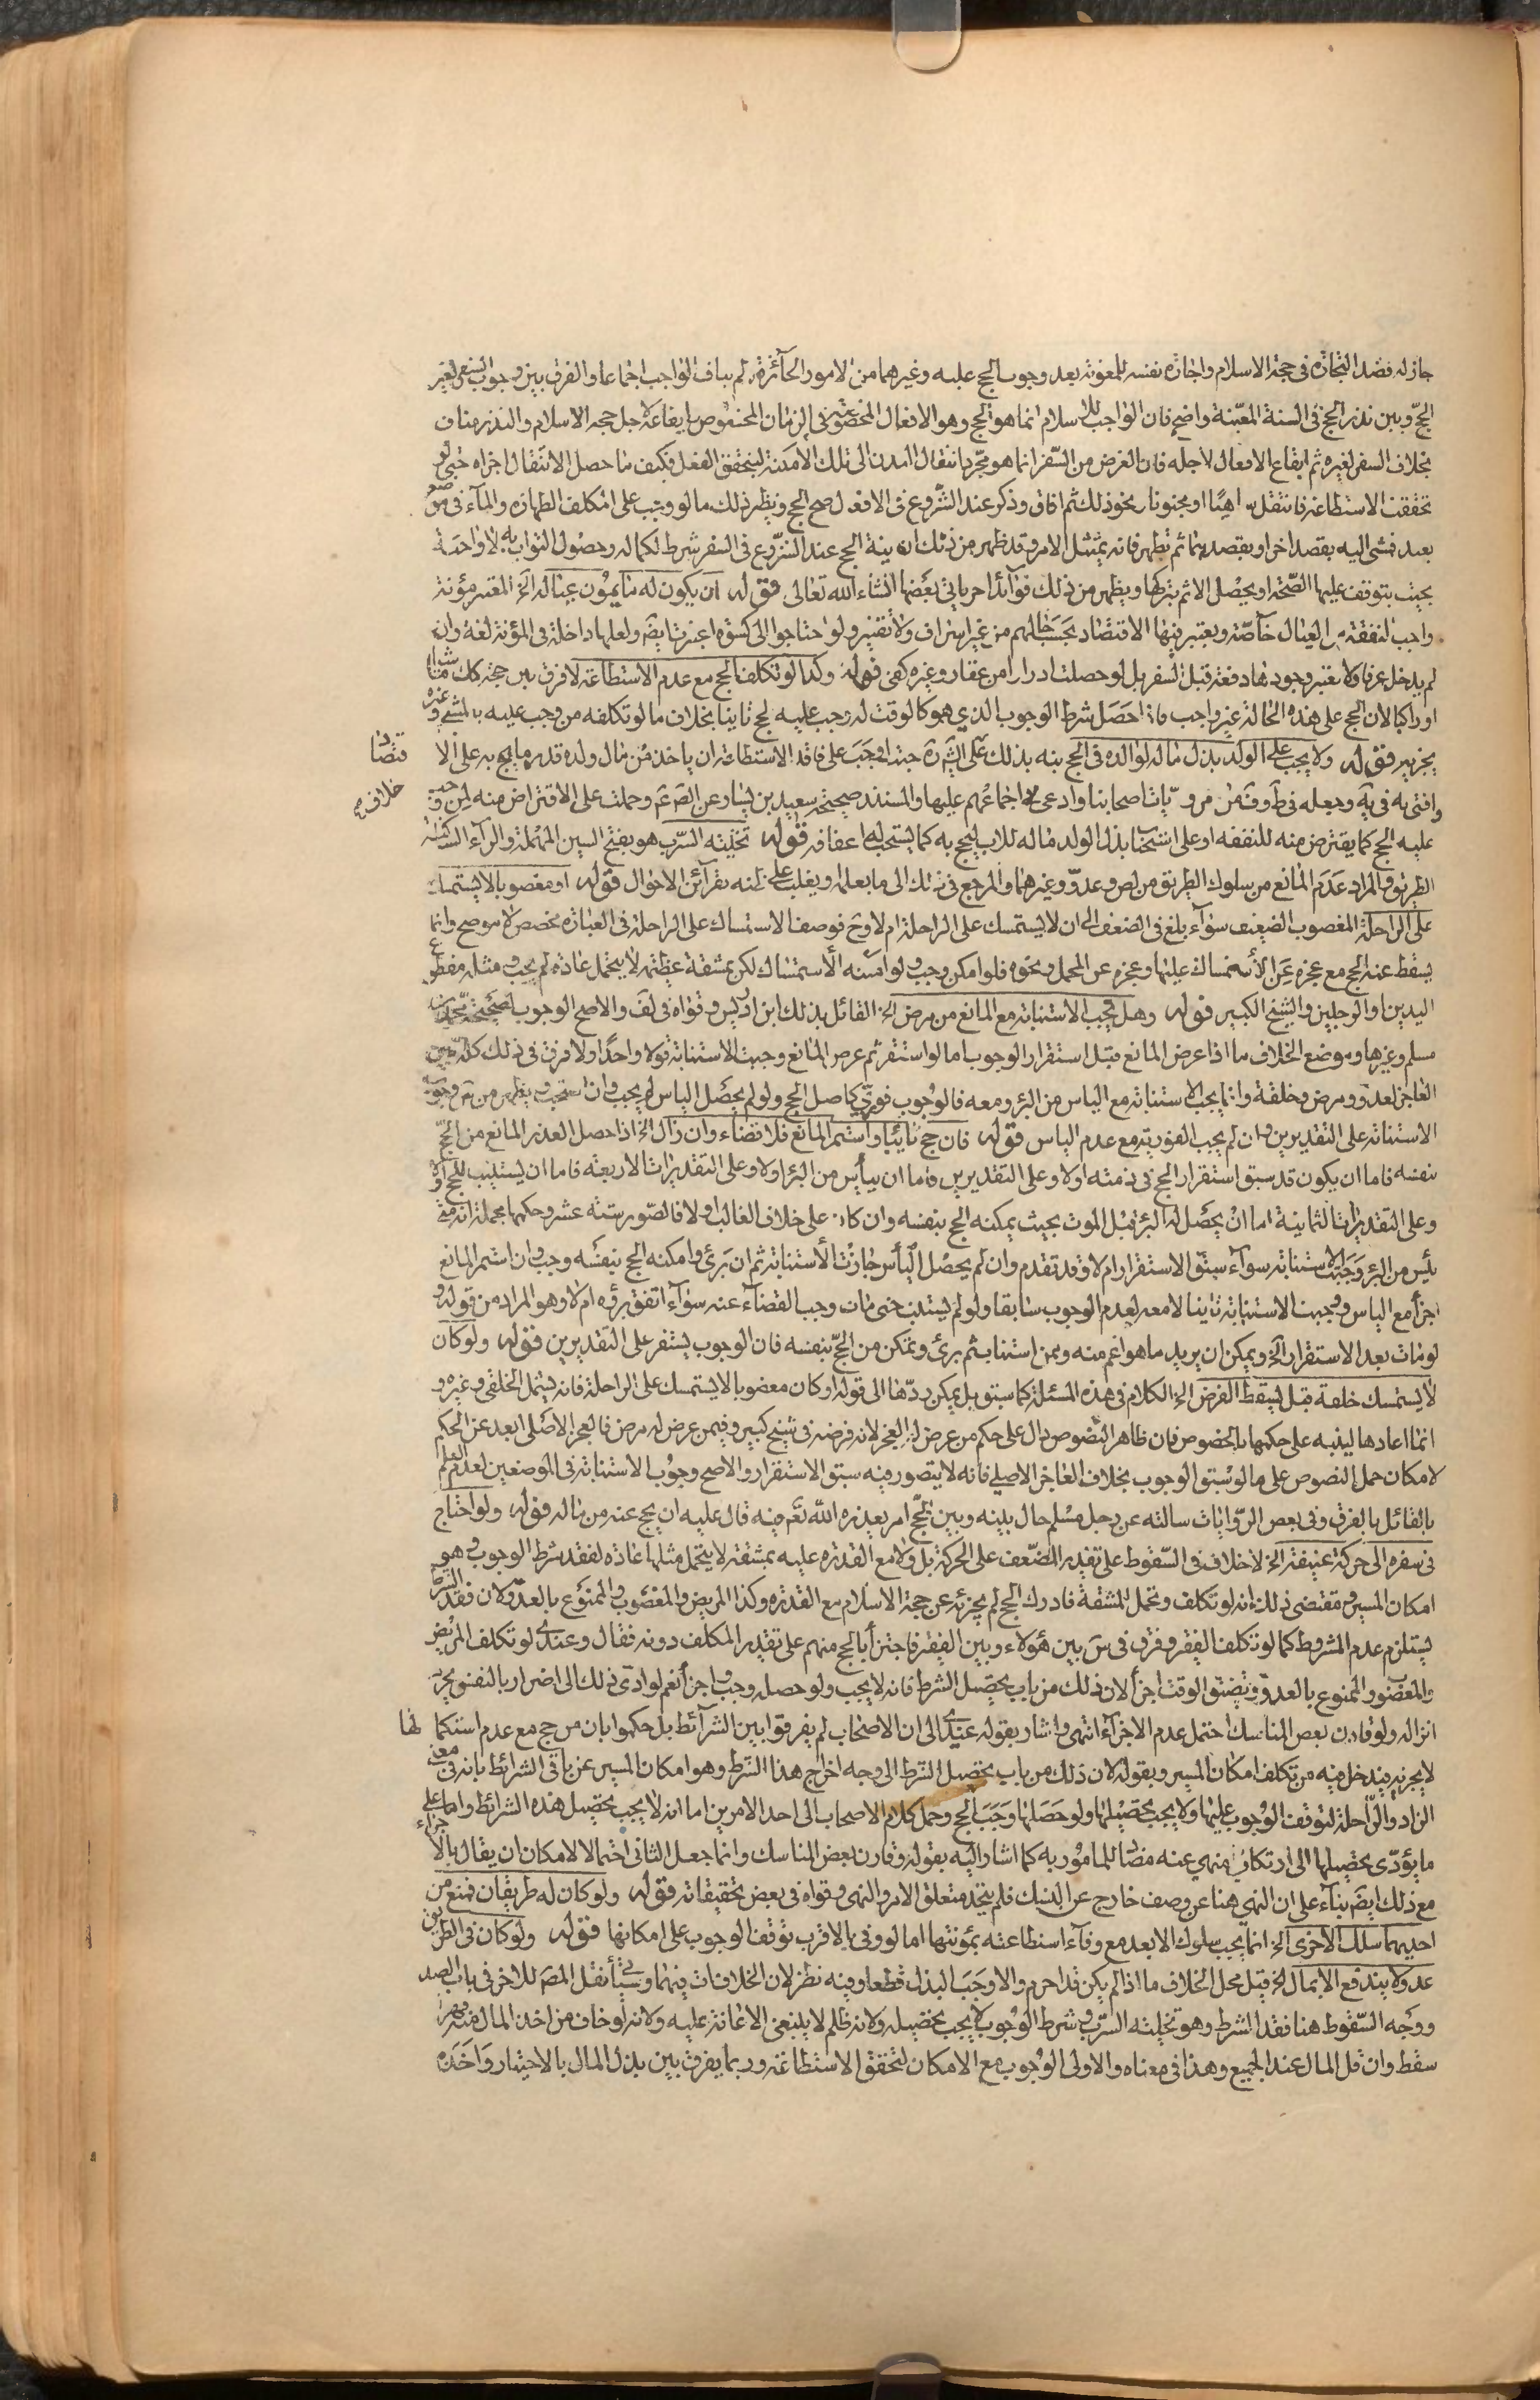 جاز له قصد التجارة فى حجة الاسلام واجارة نفسه للمعونة بعد وجوب الحج عليه وغيرهما من الامور الجائزة ولم يناف الواجب اجماعا والفرق بين وجوب السفر لغير
الحج وبين نذر الحج فى السنة المعينة واضح فان الواجب للاسلام انما هو الحج وهو الافعال المخصوصة فى الزمان المخصوص بايقاعه لاجل حجة الاسلام والنذر مناف
بخلاف السفر لغيره ثم ايقاع الافعال لاجله فان الغرض من السفر انما هو مجرد انتقال البدن الى تلك الامكنة ليتحقق الفعل فكيف ما حصل الانتقال اجزاه حتى لو
تحققت الاستطاعة فانتقل ساهيا او مجنونا ونحو ذلك ثم افاق وذكر عند الشروع فى الافعال صح الحج ونظير ذلك ما لو وجب على المكلف الطهارة والماء فى موضع
بعيد فمشى اليه بقصد اخر او بقصدهما ثم تطهر فانه يمتثل الامر وقد ظهر من ذلك ان نية الحج عند الشروع فى السفر شرط لكماله وحصول الثواب به لا واجبة
بحيث يتوقف عليها الصحة او يحصل الاثم بتركها ويظهر من ذلك فوائد اخر ياتى بعضها انشاء الله تعالى قوله ان يكون له ما يمون عياله الخ المعتبر مؤنة
واجب النفقة من العيال خاصة ويعتبر فيها الاقتصاد بحسب حالهم من غير اسراف ولا تقتير ولو احتاجوا الى كسوة اعتبرت ايضا ولعلها داخلة فى المؤنة لغة وان
لم يدخل عرفا ولا يعتبر وجودها دفعة قبل السفر بل لو حصلت ادرارا من عقار وغيره كفى قوله وكذا لو تكلف الحج مع عدم الاستطاعة لا فرق بين حجه كك ماشيا
او راكبا لان الحج على هذه الحالة غير واجب فاذا حصل شرط الوجوب الذي هو كالوقت له وجب عليه الحج ثانيا بخلاف ما لو تكلفه من وجب عليه بالمشى وغيره
يجزيه قوله ولا يجب على الولد بذل ماله لوالده فى الحج نبه بذلك على الشيخ حيث اوجب على فاقد الاستطاعة ان ياخذ من مال ولده قدر ما يحج به على الاقتصاد
وافتى به فى ية وجعله فى ط وف من مرويات اصحابنا وادعى فى خلافه اجماعهم عليها والمستند صحيحة سعيد بن يسار عن الص عم وحملت على الاقتراض منه لمن وجب
عليه الحج كما يقترض منه للنفقة او على استحباب بذل الولد ماله للاب ليحج به كما يستحب له اعفافه قوله تخلية السرب هو بفتح السين المهملة والراء الساكنة
الطريق والمراد عدم المانع من سلوك الطريق من لص وعدو وغيرهما والمرجع فى ذلك الى ما يعلمه او يغلب على ظنه بقرائن الاحوال قوله او معضوبا لا يستمسك
على الراحلة المعضوب الضعيف سواء بلغ فى الضعف الى ان لا يستمسك على الراحلة ام لا وح فوصف الاستمساك على الراحلة فى العبارة مخصص لا موضح وانما
يسقط عنه الحج مع عجزه عن الاستمساك عليها وعجزه عن المحمل ونحوه فلو امكن وجب ولو امكنه الاستمساك لكن بمشقة عظيمة لا يتحمل عادة لم يجب ومثله مقطوع
اليدين او الرجلين والشيخ الكبير قوله وهل يجب الاستنابة مع المانع من مرض الخ القائل بذلك ابن ادريس وقواه فى لف والاصح الوجوب لصحيحة محمد بن
مسلم وغيرها وموضع الخلاف ما اذا عرض المانع قبل استقرار الوجوب اما لو استقر ثم عرض المانع وجبت الاستنابة قولا واحدا ولا فرق فى ذلك كله بين
العاجز لعدو ومرض وخلقة وانما يجب الاستنابة مع الياس من البرء ومعه فالوجوب فوري كاصل الحج ولو لم يحصل الياس لم يجب وان استحب ويظهر من س وجوب
الاستنابة على التقديرين وان لم يجب الفورية مع عدم الياس قوله فان حج نائبا واستمر المانع فلا قضاء وان زال الخ اذا حصل العذر المانع من الحج
بنفسه فاما ان يكون قد سبق استقرار الحج فى ذمته او لا وعلى التقديرين فاما ان ييأس من البرء او لا وعلى التقديرات الاربعة فاما ان يستنيب للحج او لا
وعلى التقديرات الثمانية اما ان يحصل له البرء قبل الموت بحيث يمكنه الحج بنفسه وان كان على خلاف الغالب او لا فالصور ستة عشر وحكمها مجملا انه متى
يئس من البرء وجبت الاستنابة سواء سبق الاستقرار ام لا وقد تقدم وان لم يحصل الياس جازت الاستنابة ثم ان برئ وامكنه الحج بنفسه وجب وان استمر المانع
اجزأ مع الياس ووجبت الاستنابة ثانيا لا معه لعدم الوجوب سابقا ولو لم يستنب حتى مات وجب القضاء عنه سواء اتفق برؤه ام لا وهو المراد من قوله و
لو مات بعد الاستقرار الخ ويمكن ان يريد ما هو اعم منه ومن استناب ثم برئ وتمكن من الحج بنفسه فان الوجوب يستقر على التقديرين قوله ولو كان
لا يستمسك خلقة قيل يسقط الفرض الخ الكلام فى هذه المسئلة كما سبق بل يمكن ردها الى قوله او كان معضوبا لا يستمسك على الراحلة فانه يشمل الخلقى وغيره و
انما اعادها لينبه على حكمها بالخصوص فان ظاهر النصوص دال على حكم من عرض له العجز لانه فرضه فى شيخ كبير وفيمن عرض له مرض فالعجز الاصلى ابعد عن الحكم
لامكان حمل النصوص على ما لو سبق الوجوب بخلاف العاجز الاصلى فانه لا يتصور فيه سبق الاستقرار والاصح وجوب الاستنابة فى الموضعين لعدم العلم
بالقائل بالفرق وفى بعض الروايات سالته عن رجل مسلم حال بينه وبين الحج امر يعذره الله تعم فيه قال عليه ان يحج عنه من ماله قوله ولو احتاج
فى سفره الى حركة عنيفة الخ لا خلاف فى السقوط على تقدير الضعف على الحركة بل ولا مع القدرة عليه بمشقة لا يتحمل مثلها عادة لفقد شرط الوجوب وهو
امكان المسير ومقتضى ذلك انه لو تكلف وتحمل المشقة فادرك الحج لم يجزئه عن حجة الاسلام مع القدرة وكذا المريض والمعضوب والممنوع بالعدو لان فقد الشرط
يستلزم عدم المشروط كما لو تكلف الفقير وفرق فى س بين هؤلاء وبين الفقير فاجتزأ بالحج منهم على تقدير المكلف دونه فقال وعندى لو تكلف المريض
والمعضوب والممنوع بالعدو وتضيق الوقت اجزأ لان ذلك من باب تحصيل الشرط فانه لا يجب ولو حصله وجب واجزأ نعم لو ادى ذلك الى اضرار بالنفس يحرم
انزاله ولو قارن بعض المناسك احتمل عدم الاجزاء انتهى واشار بقوله عندى الى ان الاصحاب لم يفرقوا بين الشرائط بل حكموا بان من حج مع عدم استكمالها
لا يجزيه فيدخل فيه من تكلف امكان المسير وبقوله لان ذلك من باب تحصيل الشرط الى وجه اخراج هذا الشرط وهو امكان المسير عن باقى الشرائط بانه فى معنى
الزاد والراحلة لتوقف الوجوب عليها ولا يجب تحصيلها ولو حصلها وجب الحج وحمل كلام الاصحاب الى احد الامرين اما انه لا يجب تحصيل هذه الشرائط واما على
ما يؤدى تحصيلها الى ارتكاب منهى عنه مضاد للمامور به كما اشار اليه بقوله وقارن بعض المناسك وانما جعل الثانى احتمالا لامكان ان يقال بالاجزاء
مع ذلك ايضا بناء على ان النهى هنا عن وصف خارج عن النسك فلم يتحد متعلق الامر والنهى وقواه فى بعض تحقيقاته قوله ولو كان له طريقان فمنع من
احديهما سلك الاخرى الخ انما يجب سلوك الابعد مع وفاء استطاعته بمؤنتها اما لو وفى بالاقرب توقف الوجوب على امكانها قوله ولو كان فى الطريق
عدو لا يندفع الا بمال الخ قيل محل الخلاف ما اذا لم يكن قد احرم والا وجب البذل قطعا وفيه نظر لان الخلاف ثابت فيهما وسيأتى نقل المص للاخر فى باب الصد
ووجه السقوط هنا فقد الشرط وهو تخلية السرب وشرط الوجوب لا يجب تحصيله ولانه ظلم لا ينبغى الاعانة عليه ولانه لو خاف من اخذ المال منه قهرا
سقط وان قل المال عند الجميع وهذا فى معناه والاولى الوجوب مع الامكان لتحقق الاستطاعة وربما يفرق بين بذل المال بالاختيار واخذه